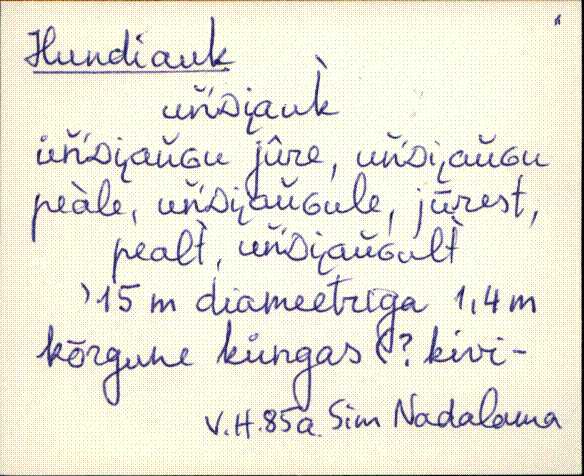 Hundiauk
uńᴅi̭auk̀
uńᴅi̭aŭɢu jûre, uńᴅi̭aŭɢu
peàle, uńᴅi̭aŭɢule, jūrest,
pealt̀, uńᴅi̭aŭɢult̀
15 m diameetriga 1,4 m
kõrgune küngas (? kivi-
V.H. 85a. Sim Nadalama